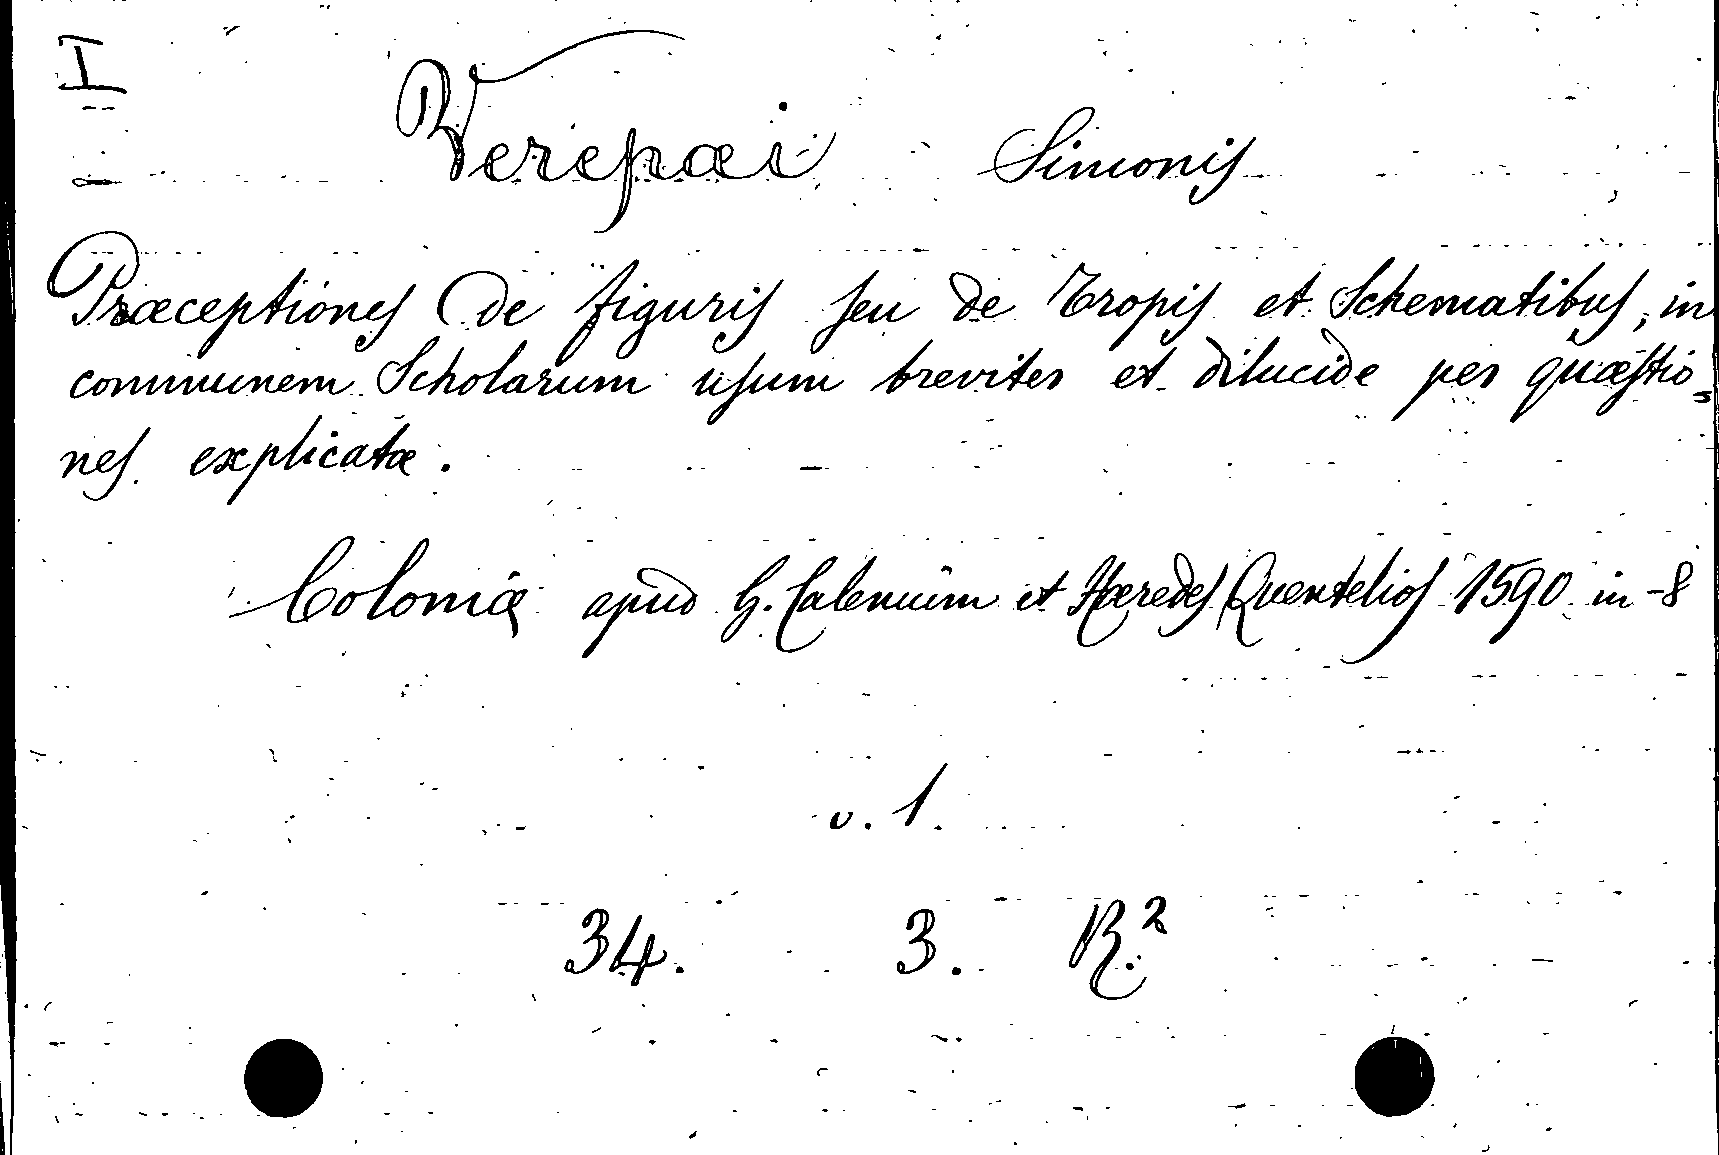 I
Verepæi Simonis
Præceptiones de figuris seu de Tropis et Schematibus, in
communem Scholarum usum breviter et dilucide per quæstio=
nes explicatæ.
Coloniæ apud G. Calenium et Hæredes Quentelios 1590 in-8
v. 1.
34. 3. R.²